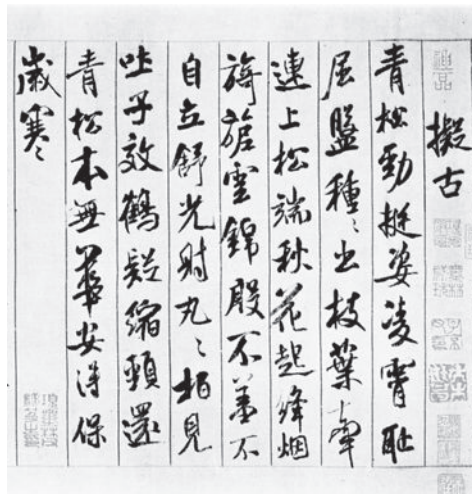 擬古
青松勁挺姿凌霄恥
屈盤種〻出枝葉牽
連上松端秋花起絳烟
旖旎雲錦殷不羞不
自立舒光射丸〻柏見
吐子效鶴疑縮頸還
青松本無華安得保
歲寒